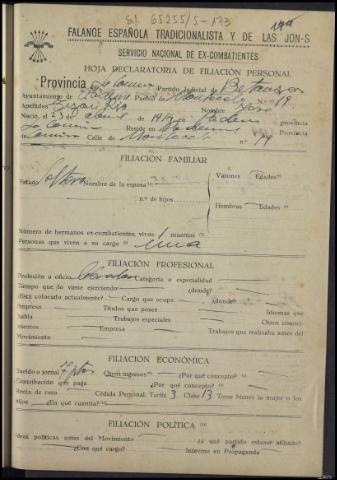 81 65255/S-173
FALANGE ESPAÑOLA TRADICIONALISTA Y DE LAS JON-S
SERVICIO NACIONAL DE EX-COMBATIENTES
HOJA DECLARATORIA DE FILIACIÓN PERSONAL
Provincia La Coruña Partido Judicial de Betanzos
Ayuntamiento de
Apellidos Nombre José
Nació el 23 de abril de 19 en provincia
La Coruña Reside en
Calle de n.º 19
FILIACIÓN FAMILIAR
Estado Soltero Nombre de la esposa Varones Edades
n.º de hijos
Hembras Edades
Número de hermanos ex-combatientes, vivos muertos
Personas que viven a su cargo una
FILIACIÓN PROFESIONAL
Profesión u oficio Categoría o especialidad
Tiempo que lo viene ejerciendo ¿dónde?
¿Está colocado actualmente? Cargo que ocupa ¿dónde
Empresa Títulos que posee Idiomas que
habla Trabajos especiales Otros conoci-
mientos Empresa Trabajos que realizaba antes del
Movimiento
FILIACIÓN ECONÓMICA
Sueldo o jornal 7 ptas Otros ingresos ¿Por qué concepto?
Contribución que paga ¿Por qué concepto?
Renta de casa Cédula Personal: Tarifa 3 Clase 13 Tiene bienes la mujer o los
hijos ¿En qué cuantía?
FILIACIÓN POLÍTICA
Ideas políticas antes del Movimiento ¿A qué partido estuvo afiliado?
¿Con qué cargo? Intervino en Propaganda